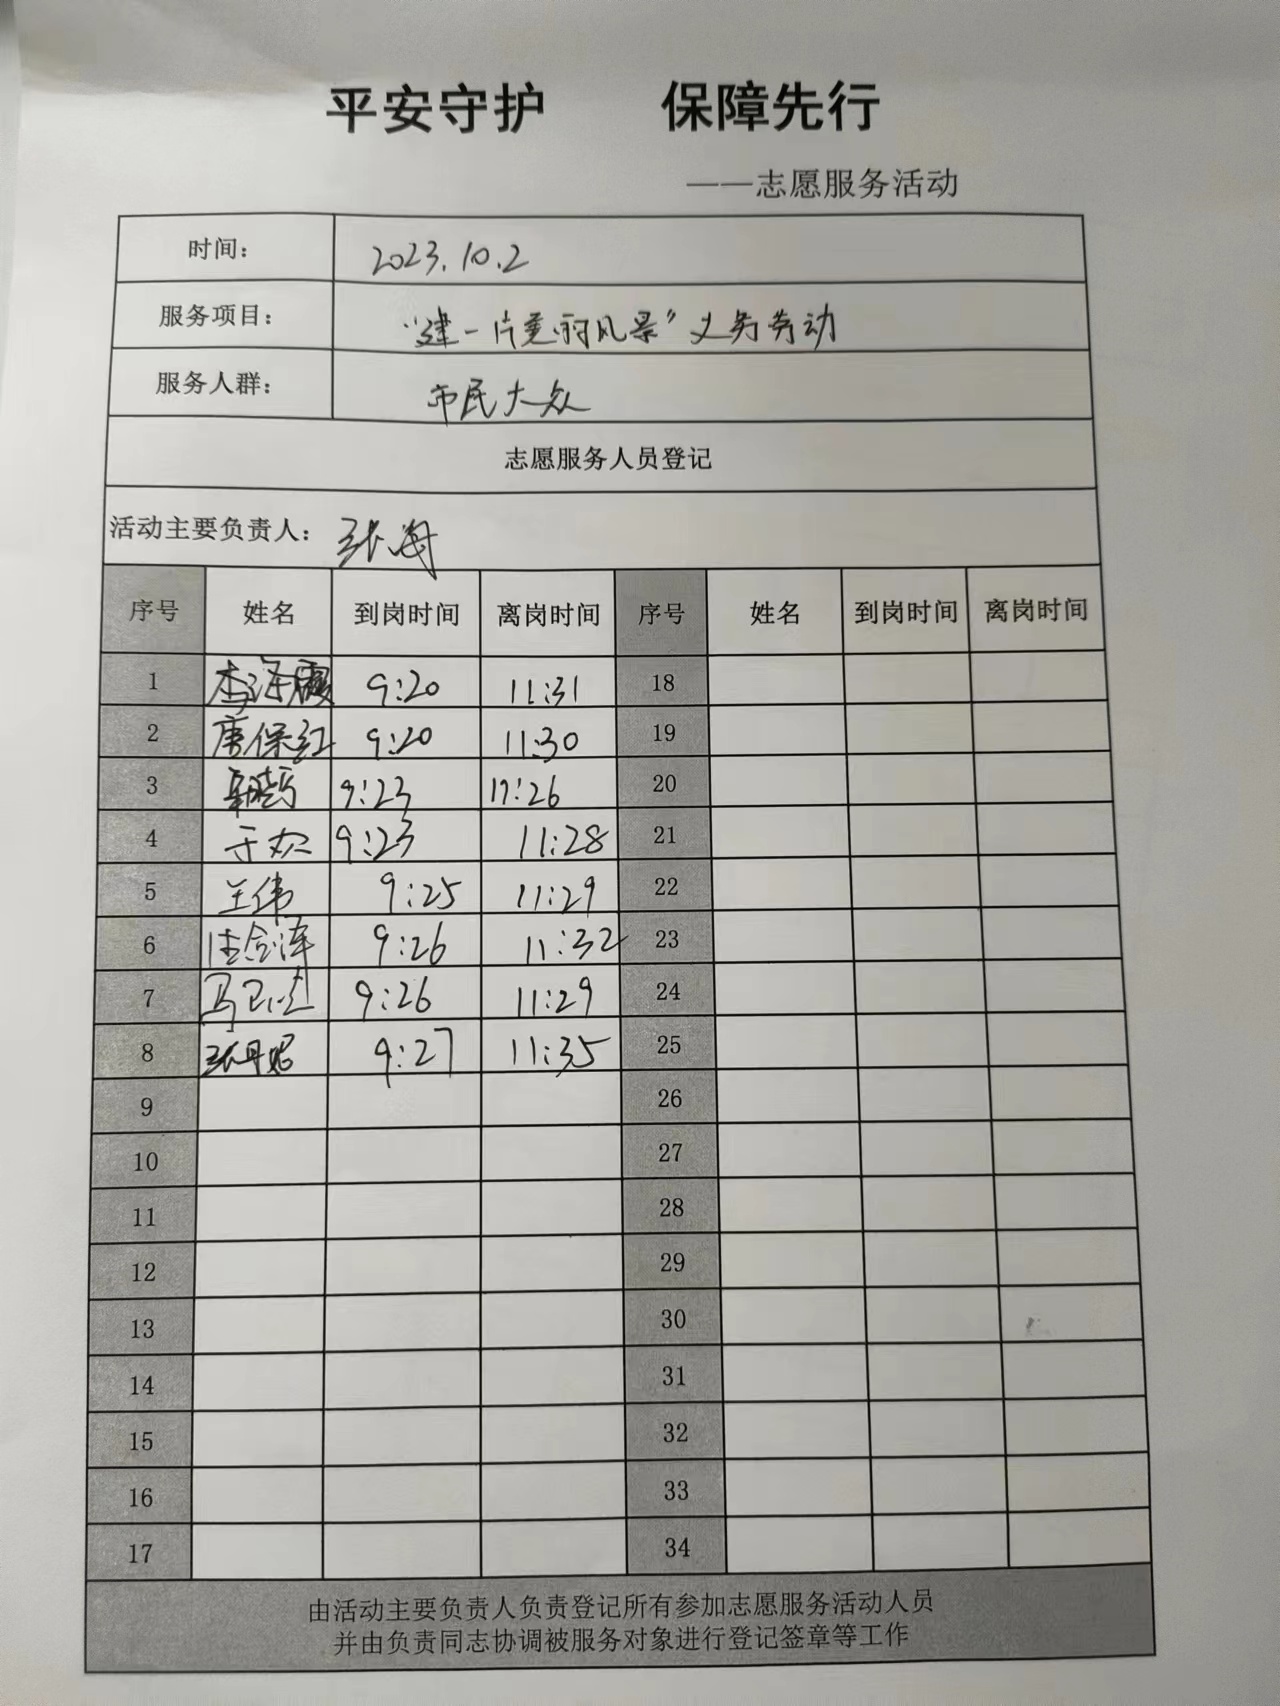 平安守护 保障先行
——志愿服务活动
时间： 2023.10.2
服务项目： “建一片美丽风景”义务劳动
服务人群： 市民大众
志愿服务人员登记
活动主要负责人： 张海
序号 姓名 到岗时间 离岗时间 序号 姓名 到岗时间 离岗时间
1 李海霞 9:20 11:31 18
2 唐保红 9:20 11:30 19
3 9:23 11:26 20
4 于欢 9:23 11:28 21
5 王伟 9:25 11:29 22
6 9:26 11:32 23
7 9:26 11:29 24
8 9:27 11:35 25
9 26
10 27
11 28
12 29
13 30
14 31
15 32
16 33
17 34
由活动主要负责人负责登记所有参加志愿服务活动人员
并由负责同志协调被服务对象进行登记签章等工作